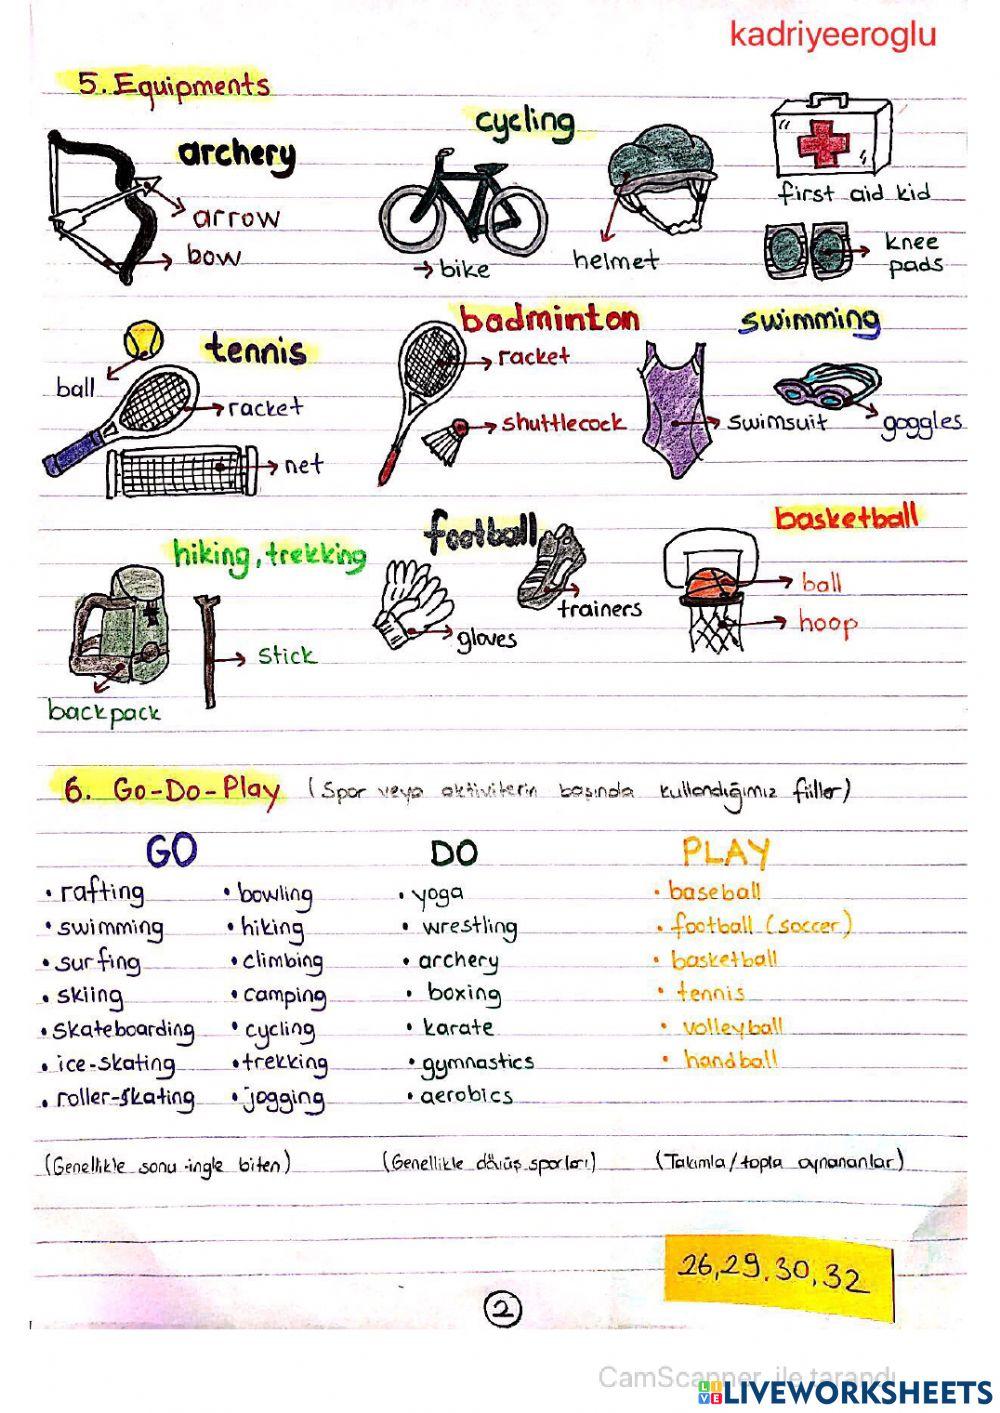 kadriyeeroglu
5. Equipments
archery
arrow
bow
cycling
bike
helmet
first aid kid
knee
pads
tennis
ball
racket
net
badminton
racket
shuttlecock
swimming
swimsuit
goggles
hiking, trekking
backpack
stick
football
gloves
trainers
basketball
ball
hoop
6. Go-Do-Play (Spor veya aktivitenin başında kullandığımız fiiller)
GO
• rafting
• swimming
• surfing
• skiing
• skateboarding
• ice-skating
• roller-skating
• bowling
• hiking
• climbing
• camping
• cycling
• trekking
• jogging
(Genellikle sonu -ingle biten)
DO
• yoga
• wrestling
• archery
• boxing
• karate
• gymnastics
• aerobics
(Genellikle dövüş sporları)
PLAY
• baseball
• football (soccer)
• basketball
• tennis
• volleyball
• handball
(Takımla/topla oynananlar)
26, 29, 30, 32
2
CamScanner ile tarandı
LIVEWORKSHEETS